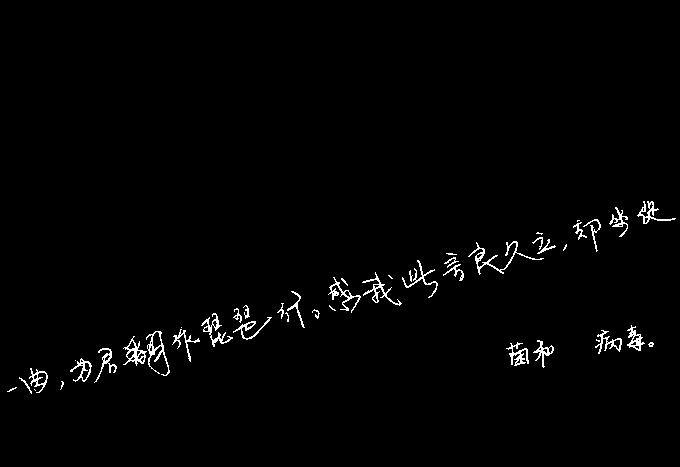 一曲,为君翻作琵琶行。感我此言良久立,却坐促
菌和 病毒。